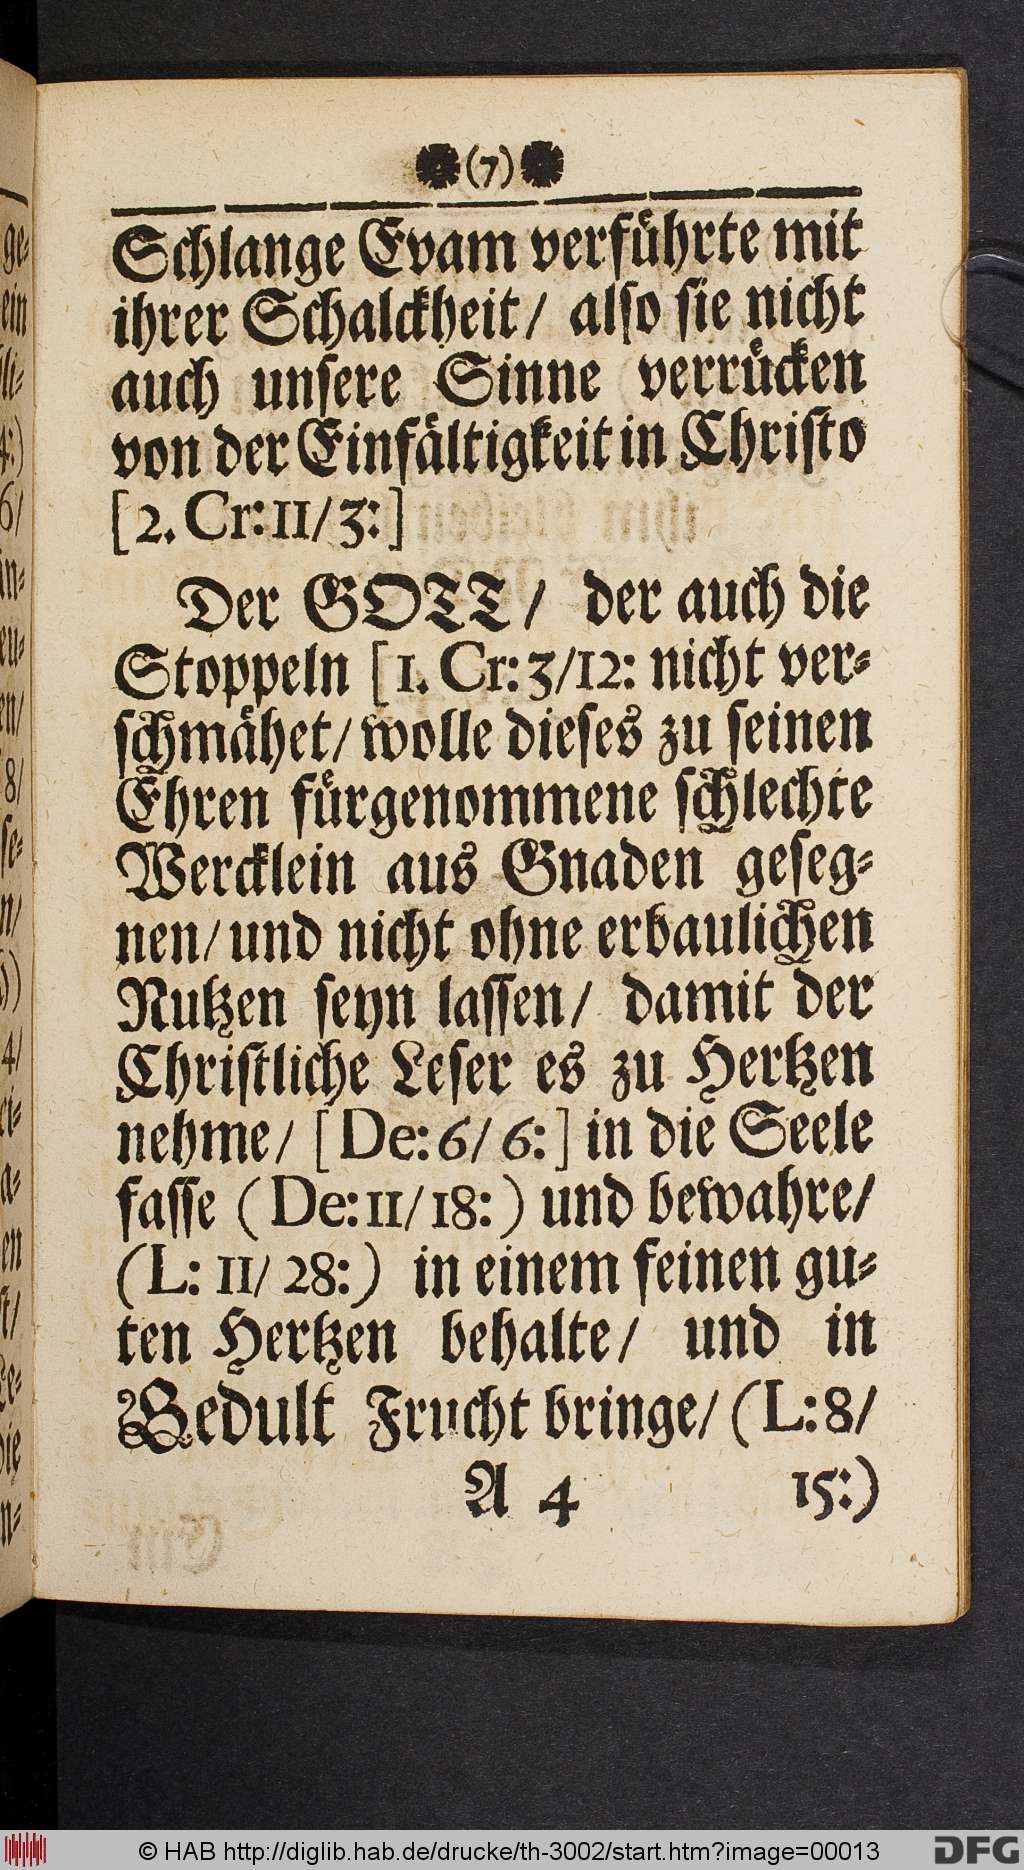 (7)
Schlange Evam verführte mit
ihrer Schalckheit/ also sie nicht
auch unsere Sinne verrücken
von der Einfältigkeit in Christo
[2. Cr: 11/3:]
Der GOTT/ der auch die
Stoppeln [1. Cr: 3/12: nicht ver-
schmähet/ wolle dieses zu seinen
Ehren fürgenommene schlechte
Wercklein aus Gnaden geseg-
nen/ und nicht ohne erbaulichen
Nutzen seyn lassen/ damit der
Christliche Leser es zu Hertzen
nehme/ [De: 6/ 6:] in die Seele
fasse (De: 11/18:) und bewahre/
(L: 11/ 28:) in einem feinen gu-
ten Hertzen behalte/ und in
Gedult Frucht bringe/ (L: 8/
A 4 15:)
© HAB http://diglib.hab.de/drucke/th-3002/start.htm?image=00013
DFG